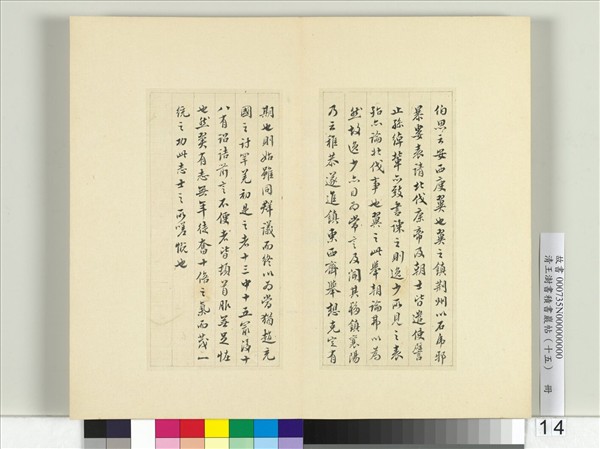 伯思云安西庾翼也翼之鎮荆州以石虎邪
暴屢表請北伐康帝及朝士皆遣使譬
止孫綽輩亦致書諫之則逸少所見之表
殆亦論北伐事也翼之此舉朝論弗以為
然故逸少亦曰為常言及聞其移鎮襄陽
乃云稚恭遂進鎮東西齊舉想克定有
期也則始雖同群議而終以為勞猶趙充
國之討罕羌初是之者十三中十五最後十
八有詔詰前言不便者皆頓首服茲足怪
也然翼有志無年徒奮十倍之氣而蔑一
統之功此志士之所嘆慨也
故書 000735N000000000
清王澍書積書巖帖(十五) 冊
14